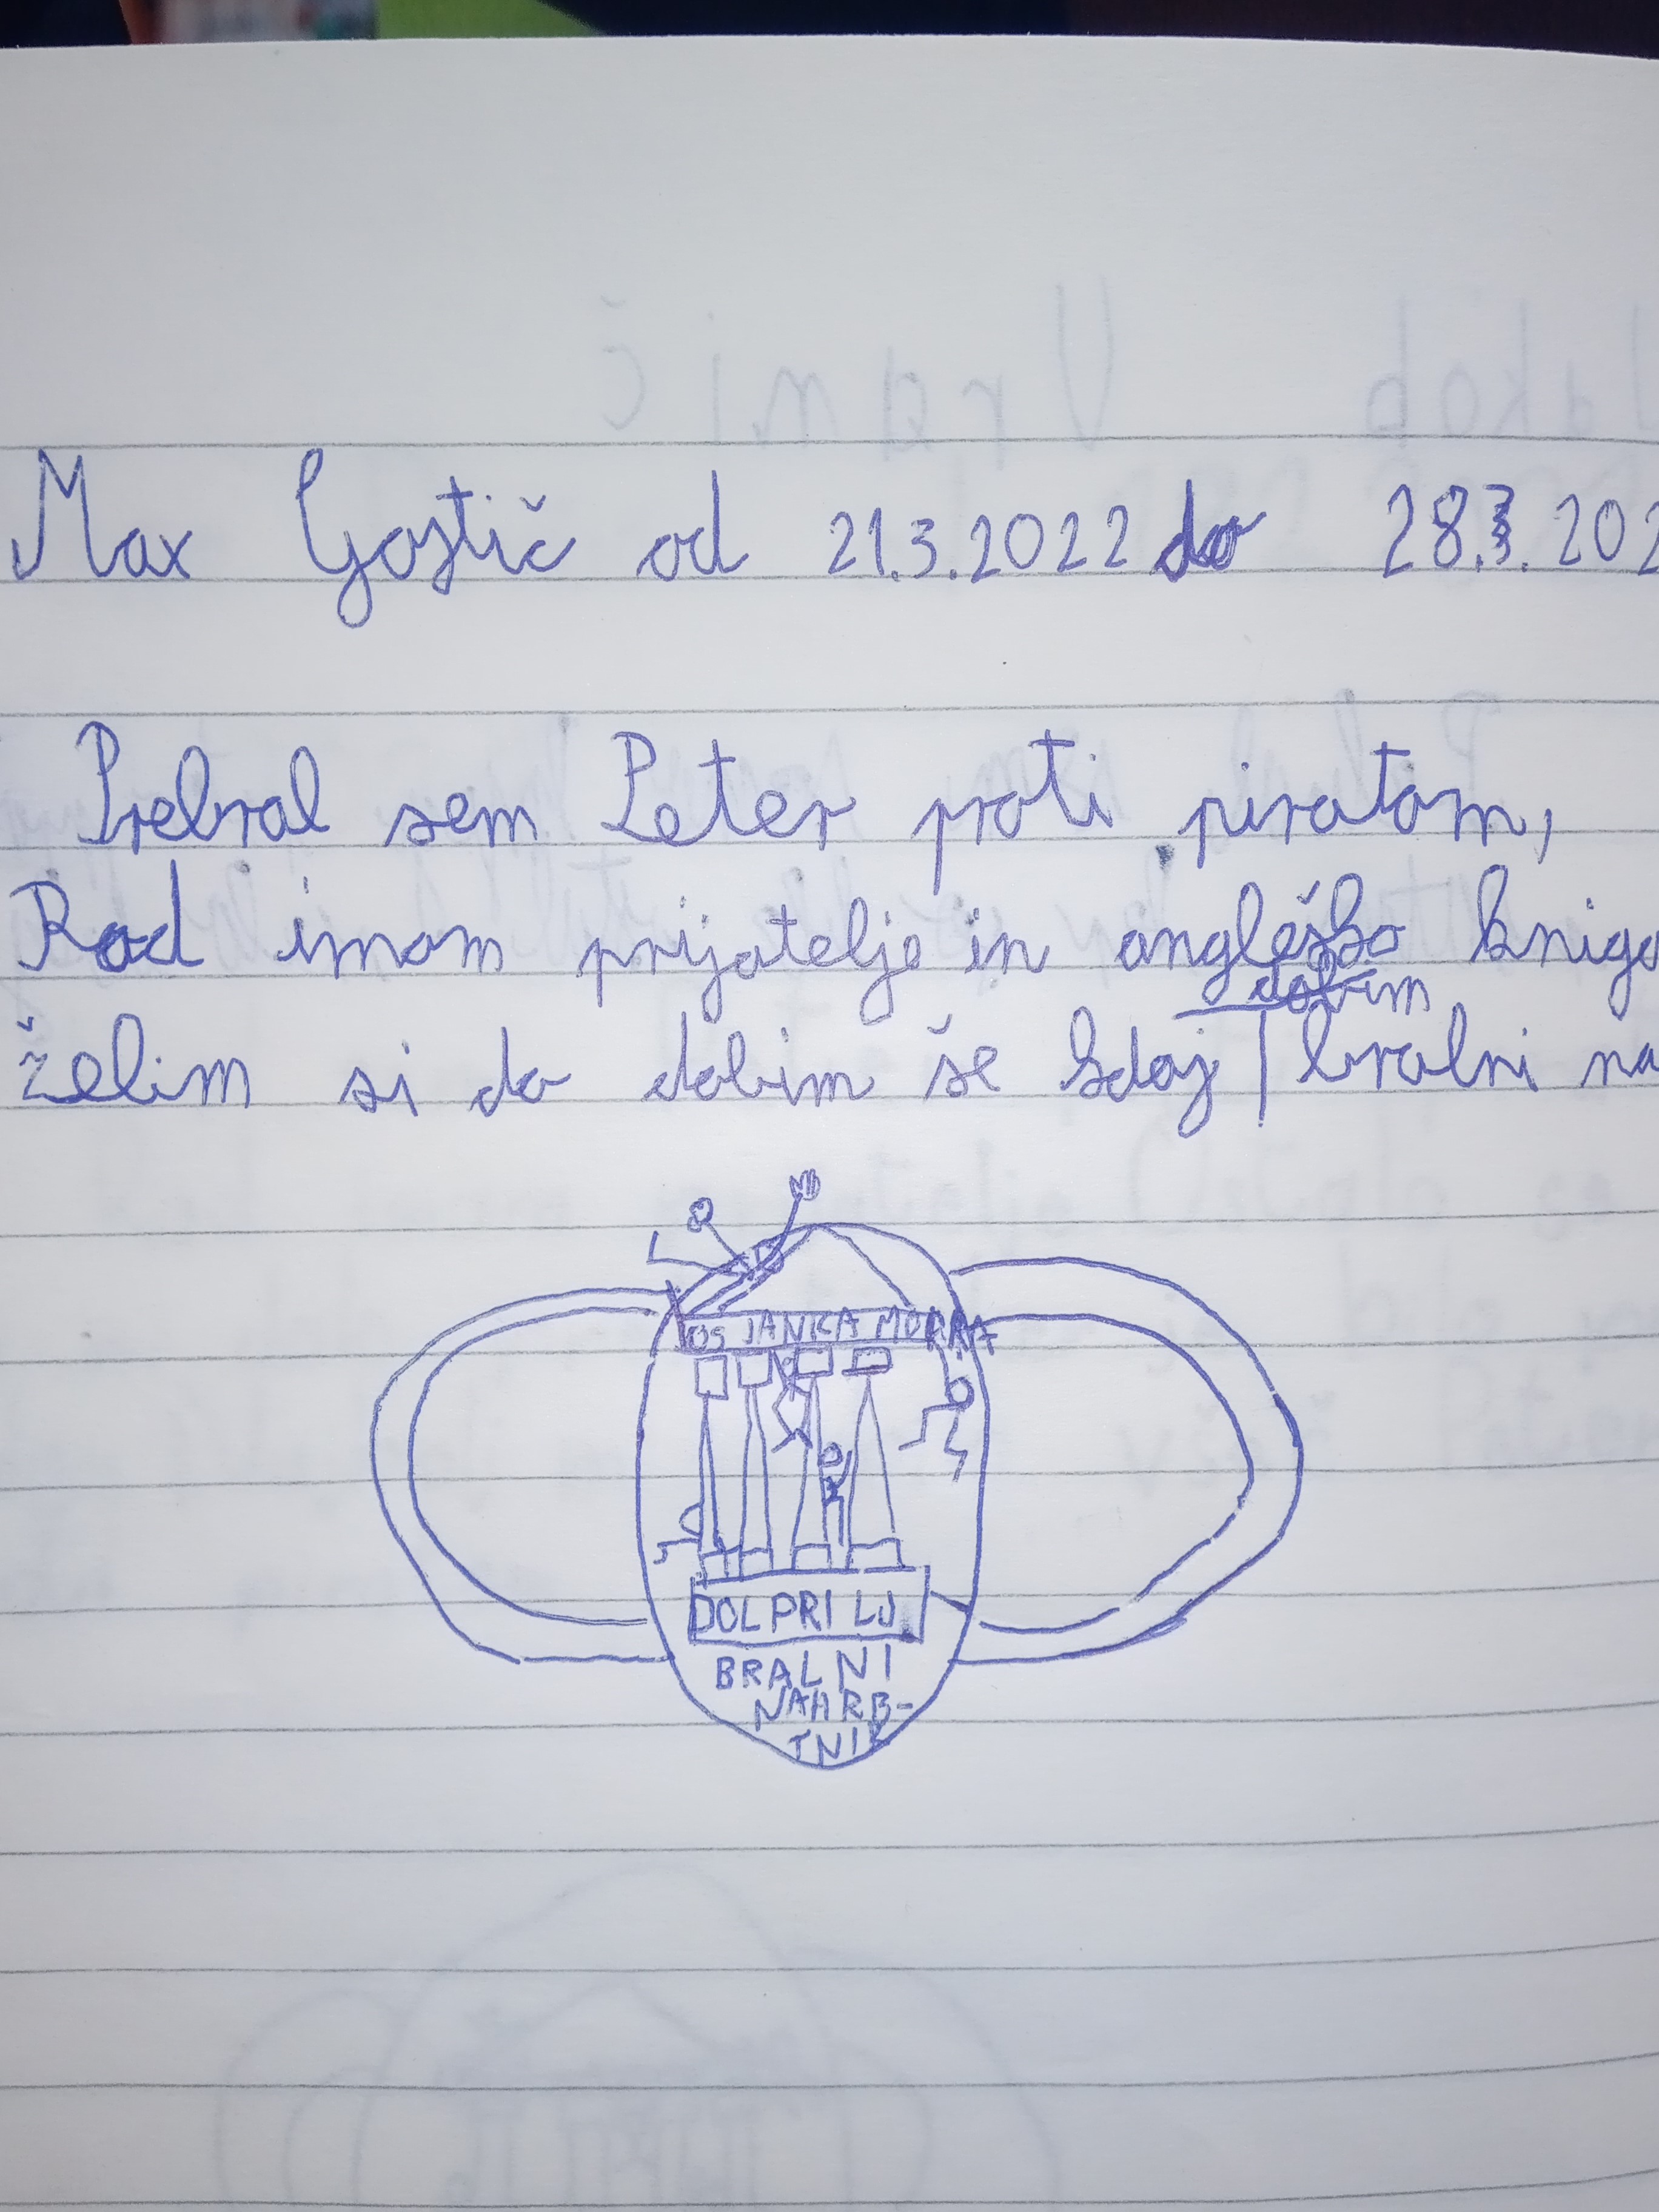 Max Gostič od 21.3.2022 do 28.3.202
Prebral sem Peter proti piratom,
Rad imam prijatelje in angleško knigo
dobim
želim si da dobim še kdaj bralni na
OŠ JANKA MODRA
DOL PRI LJ
BRALNI
NAHRB-
TNIK